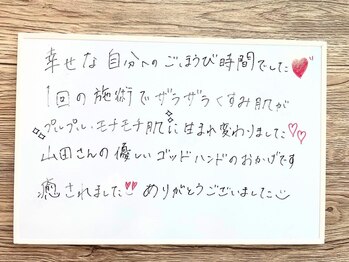 幸せな自分へのごほうび時間でした
1回の施術でザラザラくすみ肌が
プルプル・モチモチ肌に生まれ変わりました
山田さんの優しいゴッドハンドのおかげです
癒されました ありがとうございました